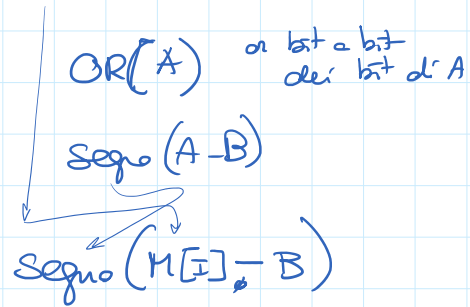 OR(A) or bit a bit
dei bit di A
segno(A-B)
segno(M[I]-B)